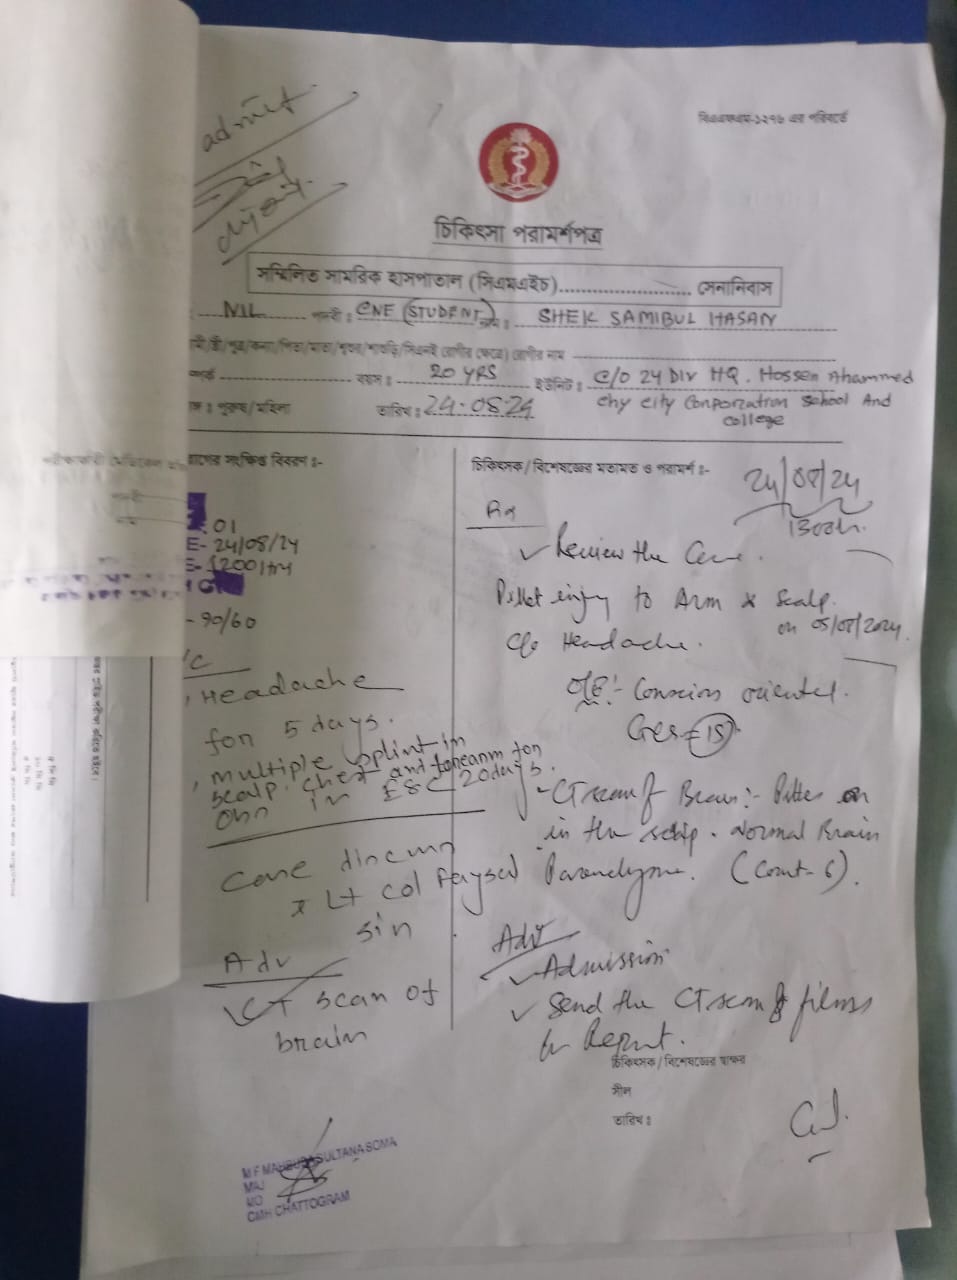 admit
বিএএফএম-১২৭৬ এর পরিবর্তে
চিকিৎসা পরামর্শপত্র
সম্মিলিত সামরিক হাসপাতাল (সিএমএইচ)........................ সেনানিবাস
NIL পদবী : CNE (STUDENT) নাম : SHEK SAMIBUL HASAN
রোগীর নাম
বয়স : 20 YRS ইউনিট : C/O 24 DIV HQ. Hossen Ahammed
পুরুষ/মহিলা তারিখ : 24.08.24 Chy City Conporzatron School And
College
সংক্ষিপ্ত বিবরণ :-
01
E- 24/08/24
E- 1200Hr
- 90/60
Headache
for 5 days.
multiple splint in
scalp, chest and forearm for
20 days.
Lt Col Faysal
Sir
Adv
CT scan of
brain
M F MAHBUBA SULTANA SOMA
MAJ
MO
CMH CHATTOGRAM
চিকিৎসক/বিশেষজ্ঞের মতামত ও পরামর্শ :-
24/08/24
1300h.
Review the Case.
Pellet injury to Arm & Scalp.
on 05/08/2024.
C/o Headache.
O/E:- Conscious oriented.
GCS = 15
CT scan of Brain:- Pellet
in the scalp. Normal Brain
Parenchyma. (Count-6).
Adv
Admission
Send the CT scan films
& Report.
চিকিৎসক/বিশেষজ্ঞের স্বাক্ষর
সীল
তারিখ :